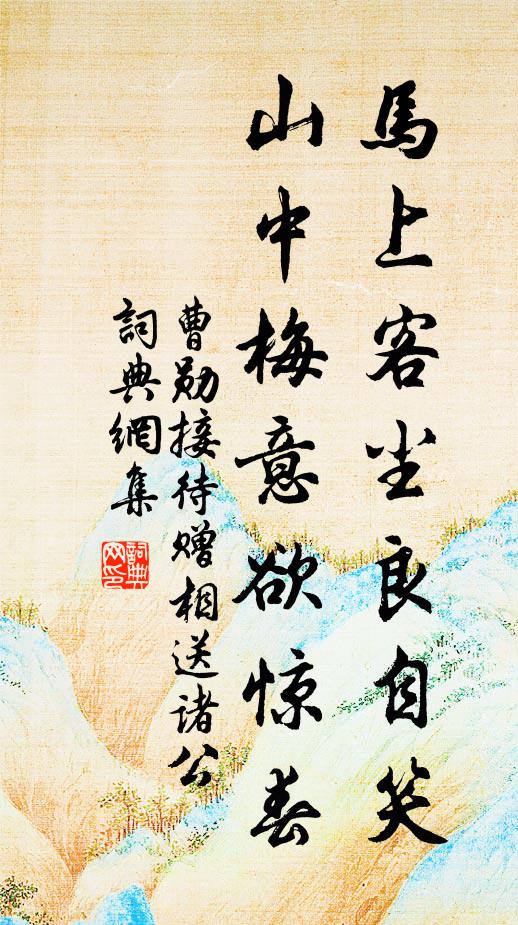 馬上客尘良自笑
山中梅意欲惊春
曹勋接待赠相送諸公
詞典網集
詞典网印